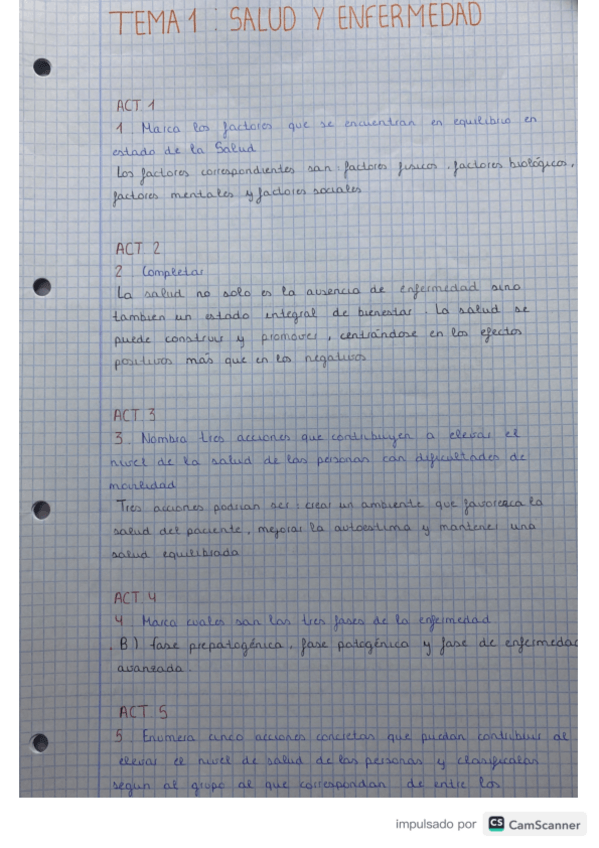 TEMA 1 : SALUD Y ENFERMEDAD
ACT 1
1 Marca los factores que se encuentran en equilibrio en
estado de la Salud
Los factores correspondientes son : factores físicos , factores biológicos,
factores mentales y factores sociales
ACT 2
2 Completar
La salud no solo es la ausencia de enfermedad sino
tambien un estado integral de bienestar . La salud se
puede construir y promover , centrándose en los efectos
positivos más que en los negativos
ACT 3
3. Nombra tres acciones que contribuyen a elevar el
nivel de la salud de las personas con dificultades de
movilidad
Tres acciones podrian ser : crear un ambiente que favorezca la
salud del paciente , mejorar la autoestima y mantener una
salud equilibrada
ACT 4
4 Marca cuales son las tres fases de la enfermedad
B) fase prepatogénica , fase patogénica y fase de enfermedad
avanzada .
ACT 5
5. Enumera cinco acciones concretas que puedan contribuir al
elevar el nivel de salud de las personas y clasificalas
segun al grupo al que correspondan de entre los
impulsado por CS CamScanner